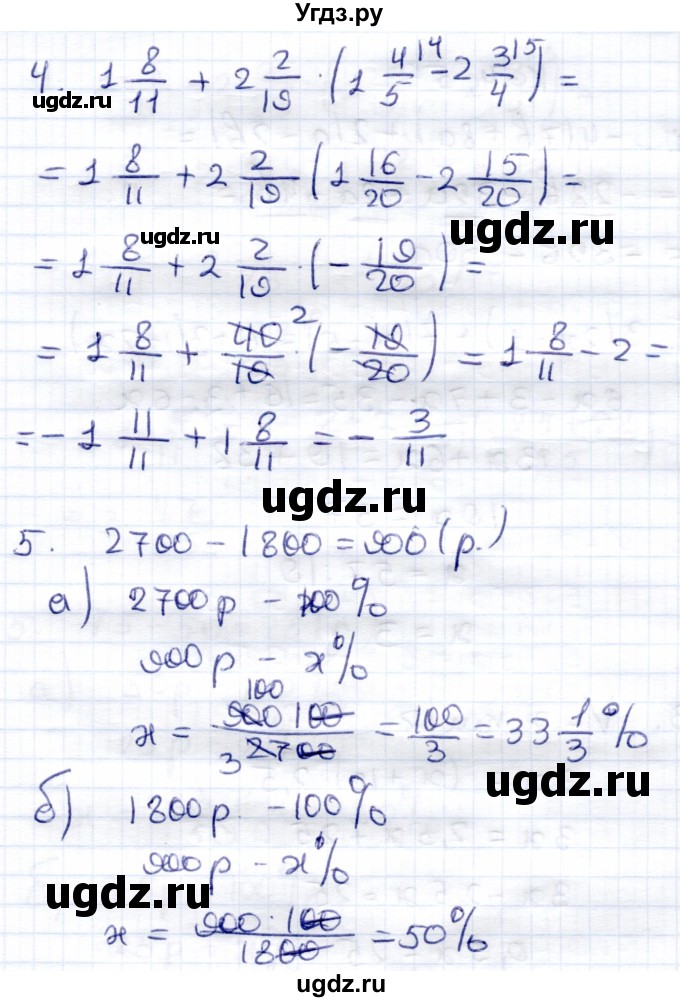 Угдз.ру
4. 1 8/11 + 2 2/19 · (1 4/5 \4 - 2 3/4 \5) =
ugdz.ru
= 1 8/11 + 2 2/19 (1 16/20 - 2 15/20) =
ugdz.ru ugdz.ru
= 1 8/11 + 2 2/19 · (- 19/20) =
= 1 8/11 + 40/19 2 · (- 19/20) = 1 8/11 - 2 =
= - 1 11/11 + 1 8/11 = - 3/11
ugdz.ru
5. 2700 - 1800 = 900 (р.)
а) 2700 р - 100%
900 р - х%
х = 900 100 · 100 / 3 2700 = 100/3 = 33 1/3 %
ugdz.ru
б) 1800 р. - 100%
900 р - х%
ugdz.ru
х = 900 · 100 / 1800 = 50%
ugdz.ru